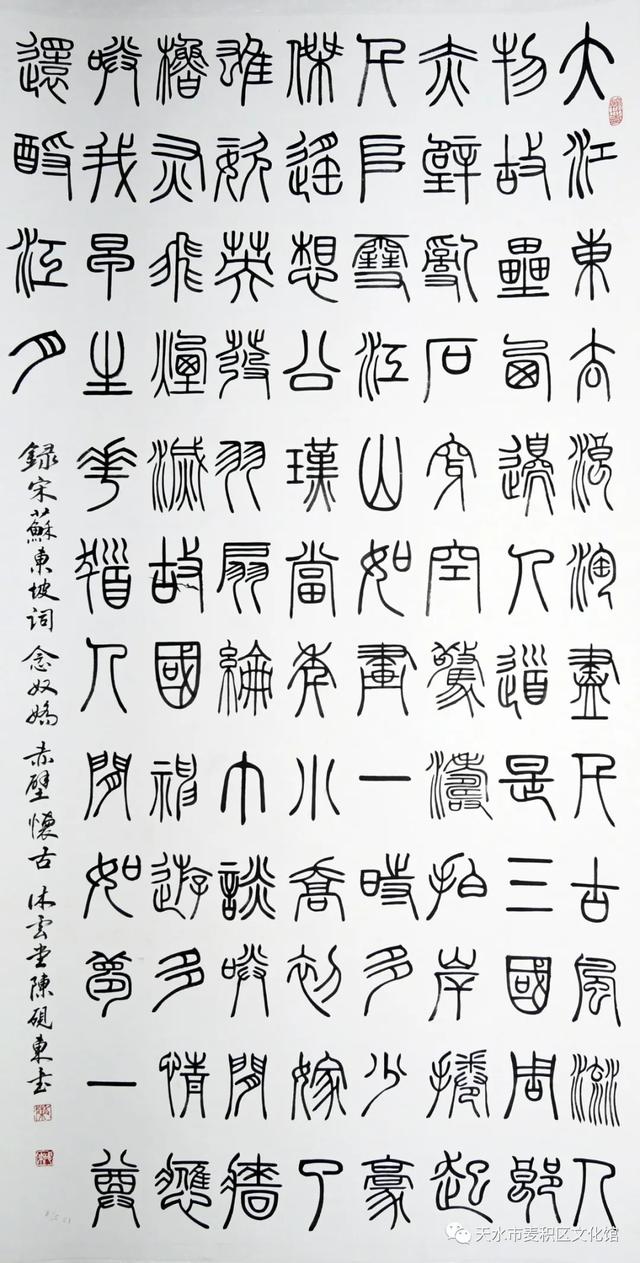 大江東去浪淘盡千古風流人
物故壘西邊人道是三國周郎
赤壁亂石穿空驚濤拍岸捲起
千堆雪江山如畫一時多少豪
傑遙想公瑾當年小喬初嫁了
雄姿英發羽扇綸巾談笑間牆
櫓灰飛煙滅故國神遊多情應
笑我早生華髮人間如夢一尊
還酹江月
録宋蘇東坡詞念奴嬌赤壁懷古沐云堂陳硯東書
天水市麦积区文化馆